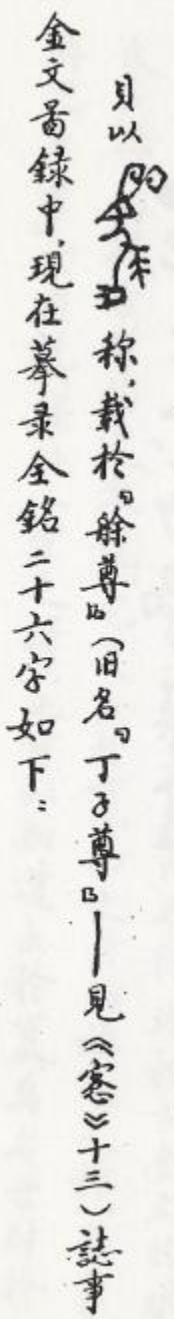 貝以 称,載於『艅尊』(旧名『丁子尊』——見《窓》十三)誌事
金文啚録中,現在摹录全銘二十六字如下: